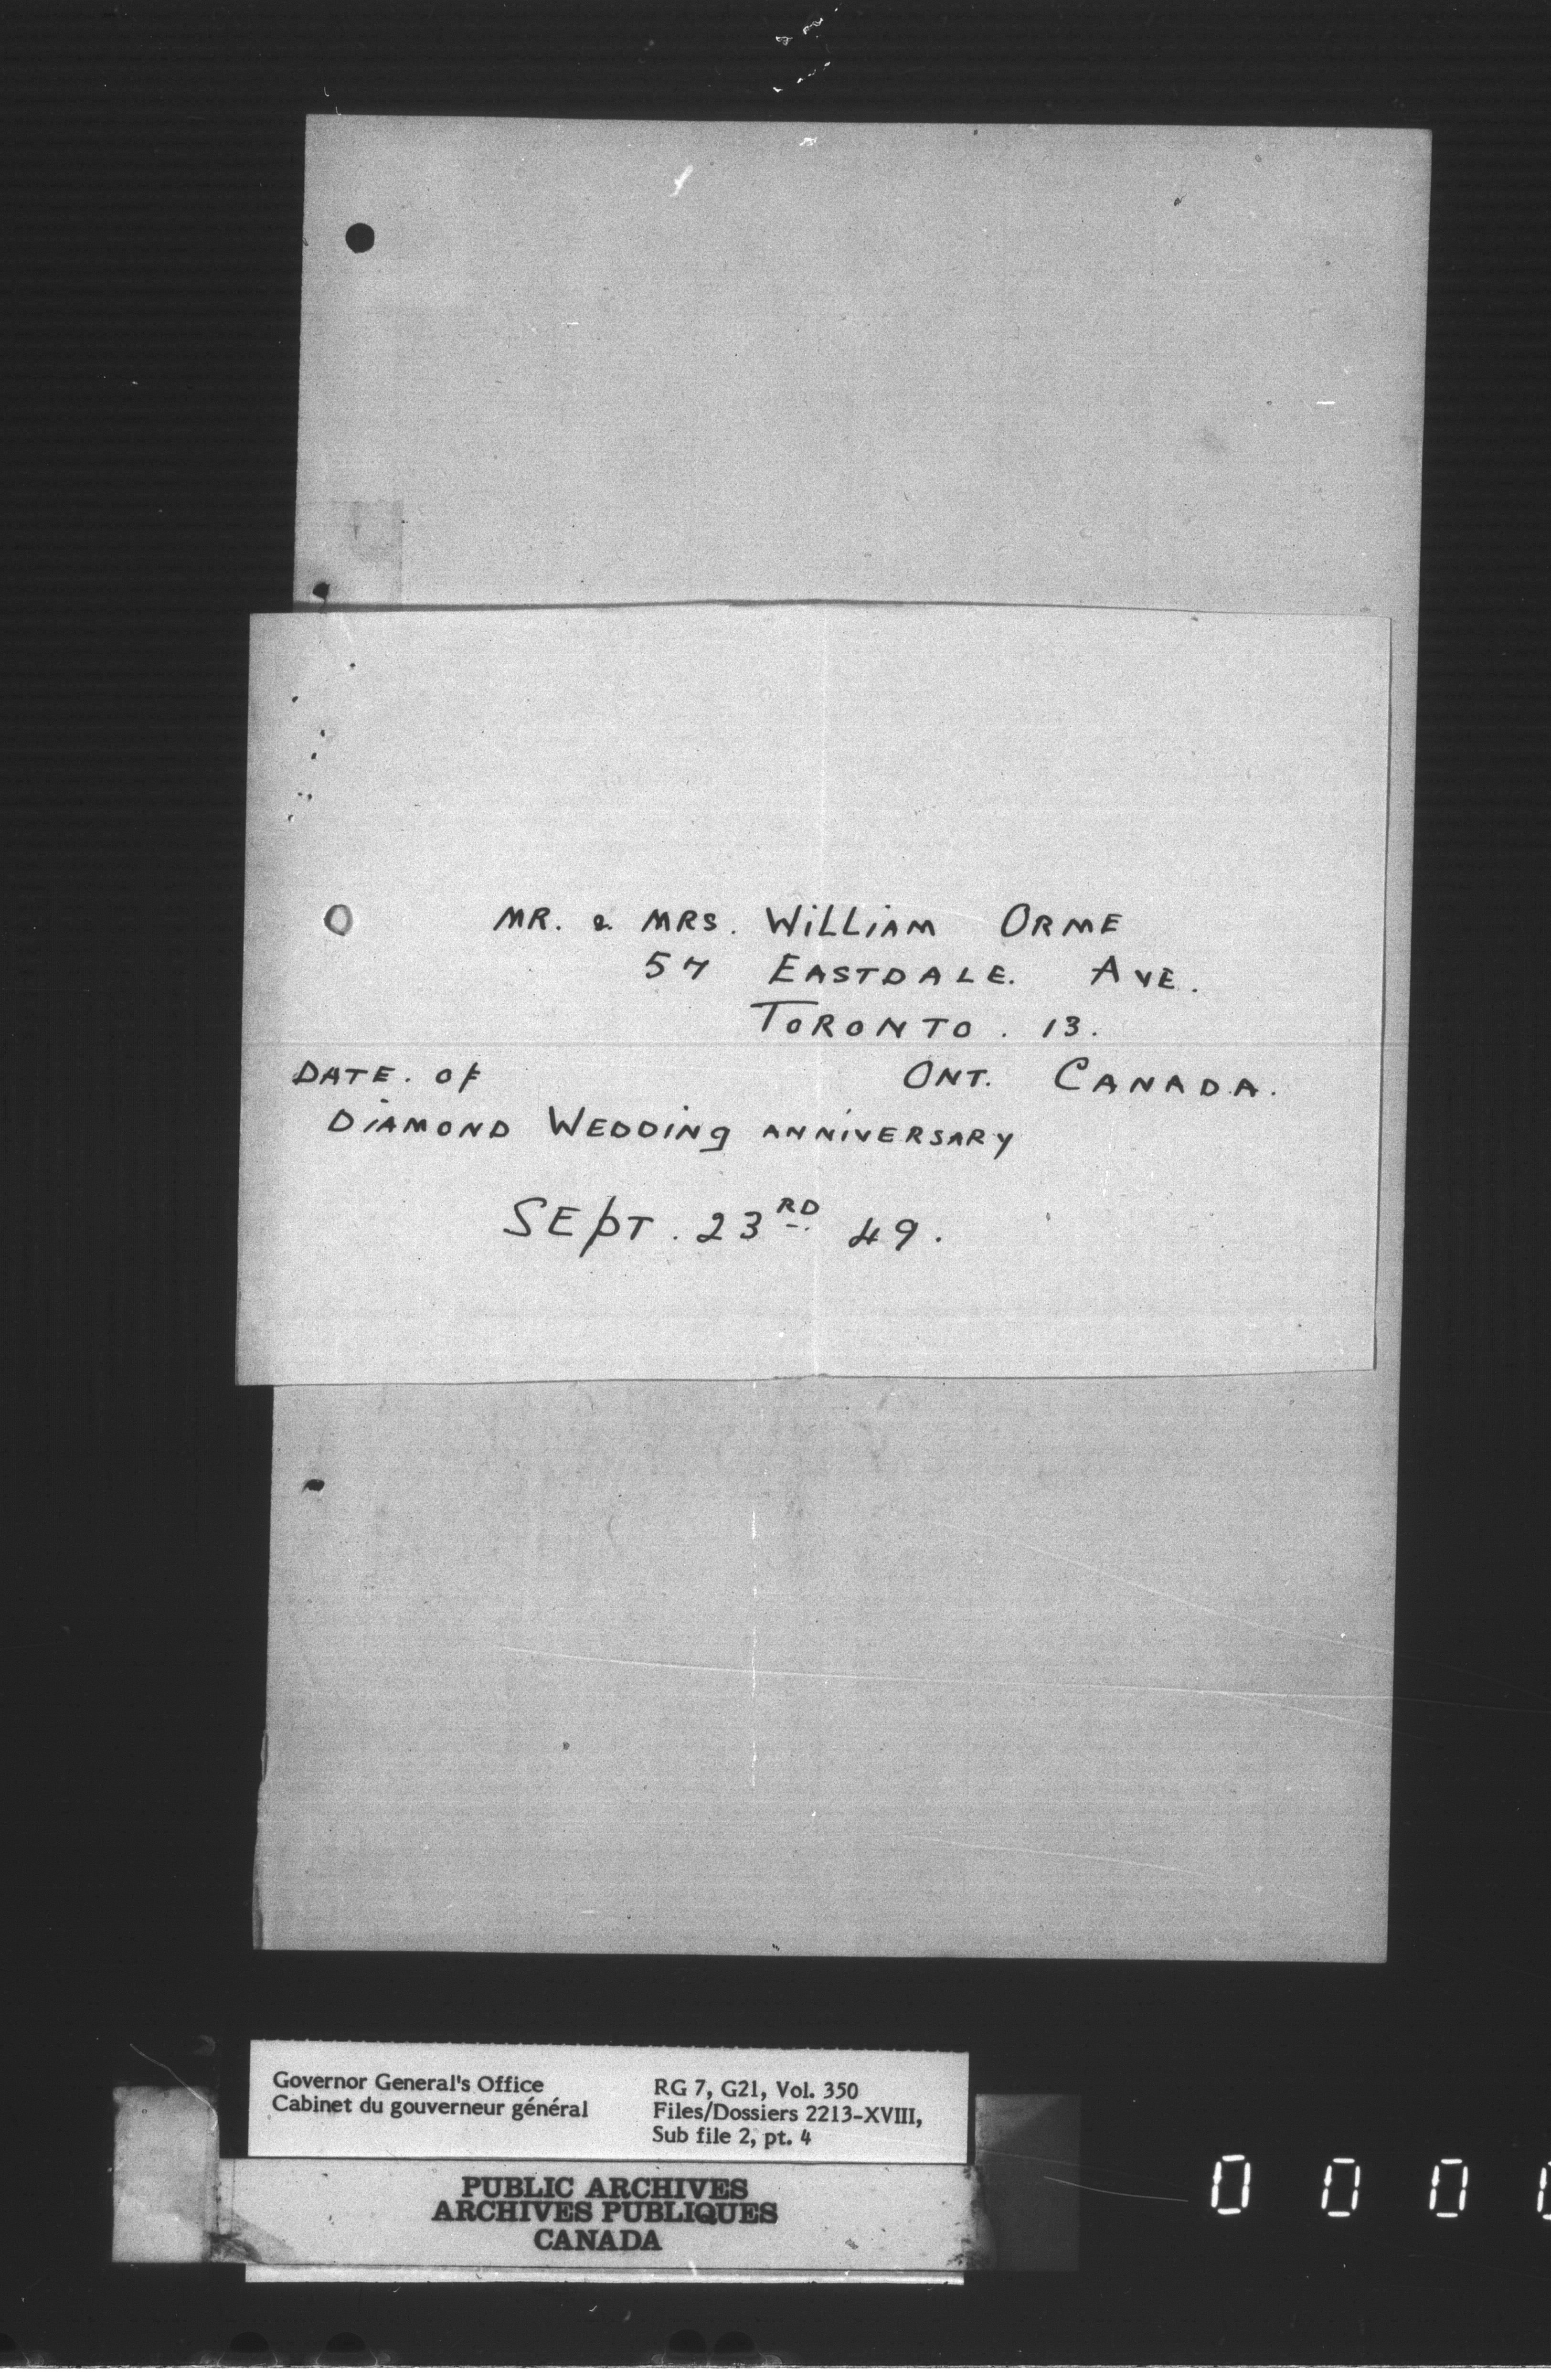 MR. & MRS. WiLLiAM ORME
57 EASTDALE. AVE.
TORONTO. 13.
DATE. of ONT. CANADA.
DiAMOND WEDDiNg ANNiVERSARY
SEpT. 23RD 49.
Governor General's Office
Cabinet du gouverneur général
RG 7, G21, Vol. 350
Files/Dossiers 2213-XVIII,
Sub file 2, pt. 4
PUBLIC ARCHIVES
ARCHIVES PUBLIQUES
CANADA
0 0 0